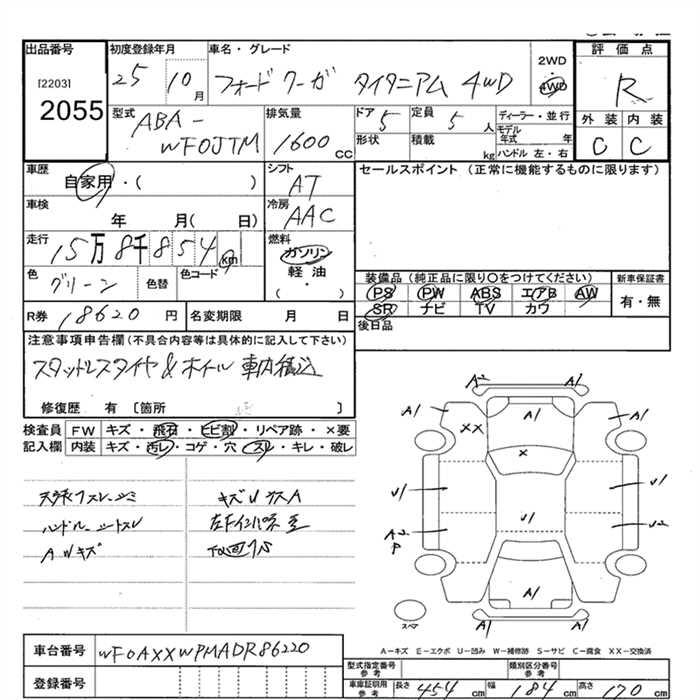 出品番号
[2203]
2055
初度登録年月
25 10月
車名・グレード
フォード クーガ タイタニアム 4WD
2WD
4WD
評価点
R
外装 内装
C C
型式
ABA-
WF0JTM
排気量
1600 cc
ドア 5
定員 5 人
形状
積載 kg
ディーラー・並行
モデル年式 年
ハンドル 左・右
車歴
自家用・( )
車検
年 月( 日)
走行
15万8千854 km
色
グリーン
色替
色コード
シフト
AT
冷房
AAC
燃料
ガソリン
軽油
・
( )
セールスポイント (正常に機能するものに限ります)
装備品 (純正品に限り○をつけてください)
PS PW ABS エアB AW
SR ナビ TV カワ
新車保証書
有・無
R券 18620 円
名変期限 月 日
後日品
注意事項申告欄 (不具合内容等は具体的に記入して下さい)
スタッドレスタイヤ&ホイール 車内積込
修復歴 有 [箇所 ]
検査員 FW キズ・飛石・ヒビ割・リペア跡・×要
記入欄 内装 キズ・汚レ・コゲ・穴・スレ・キレ・破レ
ハンドル シートスレ
キズUサスA
A2 A1
A1 A1 A1
XX
X
U1 U1 U1
A2 U2
P
A1
A1 A1
スペア
A-キズ E-エクボ U-凹み W-補修跡 S-サビ C-腐食 XX-交換済
車台番号
WF0AXXWPMADR86220
登録番号
型式指定番号
参考
類別区分番号
参考
車庫証明用
参考
長さ 454 cm 幅 184 cm 高さ 170 cm